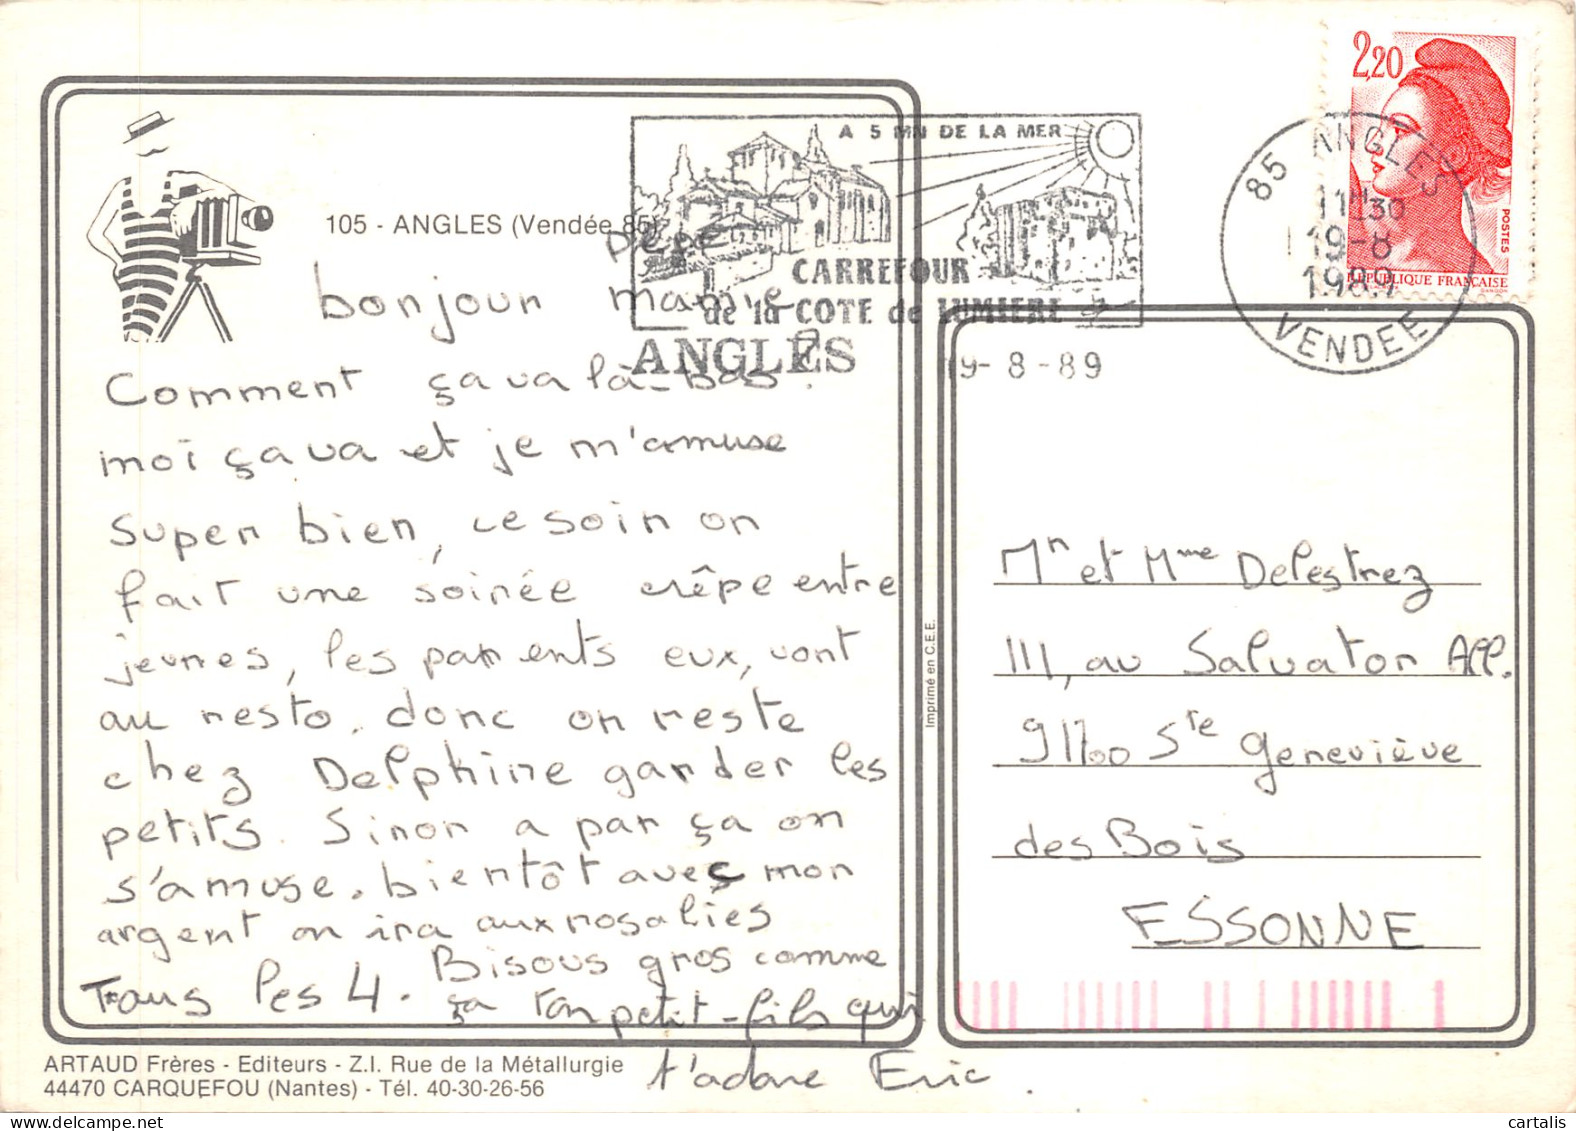 2,20
RÉPUBLIQUE FRANÇAISE
POSTES
85 ANGLES
11H30
19-8
1989
VENDEE
A 5 MN DE LA MER
CARREFOUR
de la COTE de LUMIERE
ANGLES
9-8-89
105 - ANGLES (Vendée 85)
pépé
bonjour mamie
Comment ça va là-bas ?
moi ça va et je m'amuse
super bien, ce soir on
fait une soirée crêpe entre
jeunes, les parents eux, vont
au resto. donc on reste
chez Delphine garder les
petits. Sinon a par ça on
s'amuse. bientôt avec mon
argent on ira aux rosalies
Tous les 4. Bisous gros comme
ça ton petit-fils qui
t'adore Eric.
Mr et Mme Delestrez
111, av Salvator All.
91700 Ste Geneviève
des Bois
ESSONNE
Imprimé en C.E.E.
ARTAUD Frères - Editeurs - Z.I. Rue de la Métallurgie
44470 CARQUEFOU (Nantes) - Tél. 40-30-26-56
www.delcampe.net
cartalis